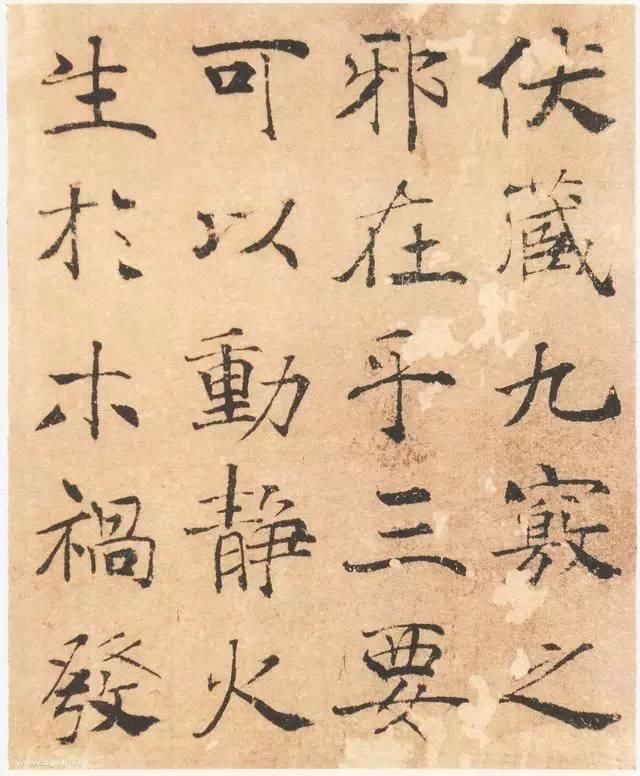 伏藏九竅之
邪在乎三要
可以動静火
生於木禍發